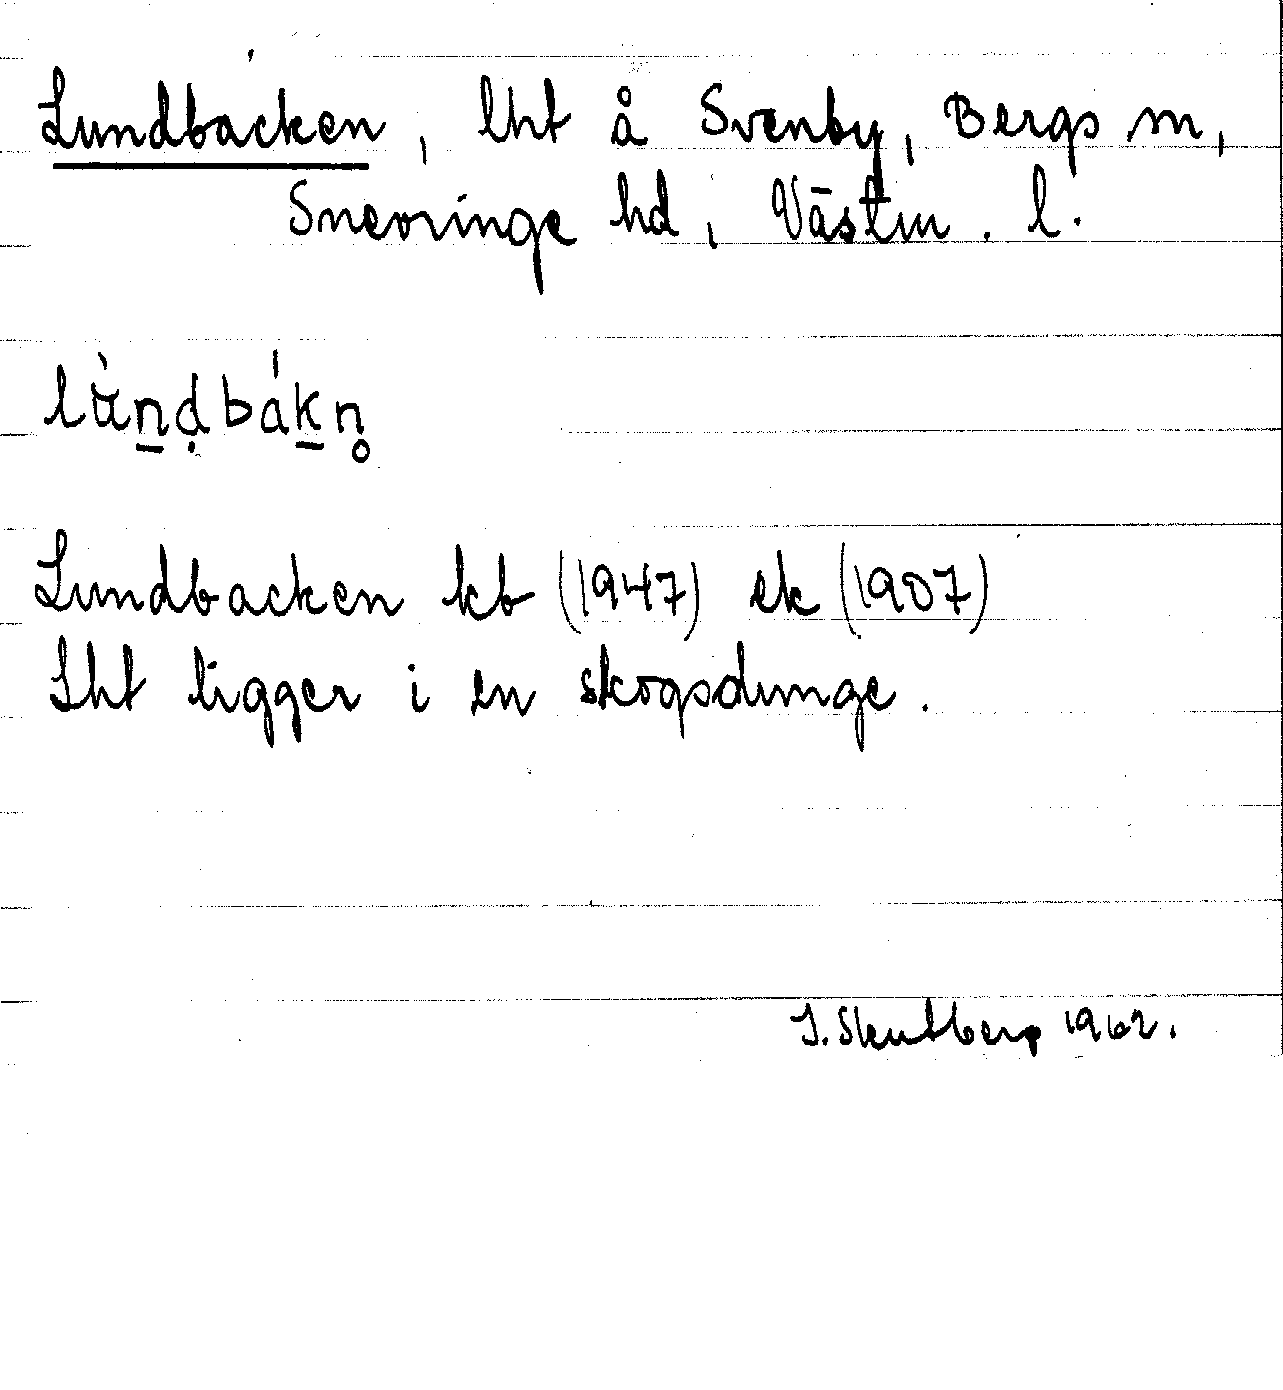 Lundbacken, lht å Svenby, Bergs sn,
Snevringe hd, Västm. l.
lùn̠ḍbák̠n̥
Lundbacken kb (1947) ek (1907)
Lht ligger i en skogsdunge.
1962.